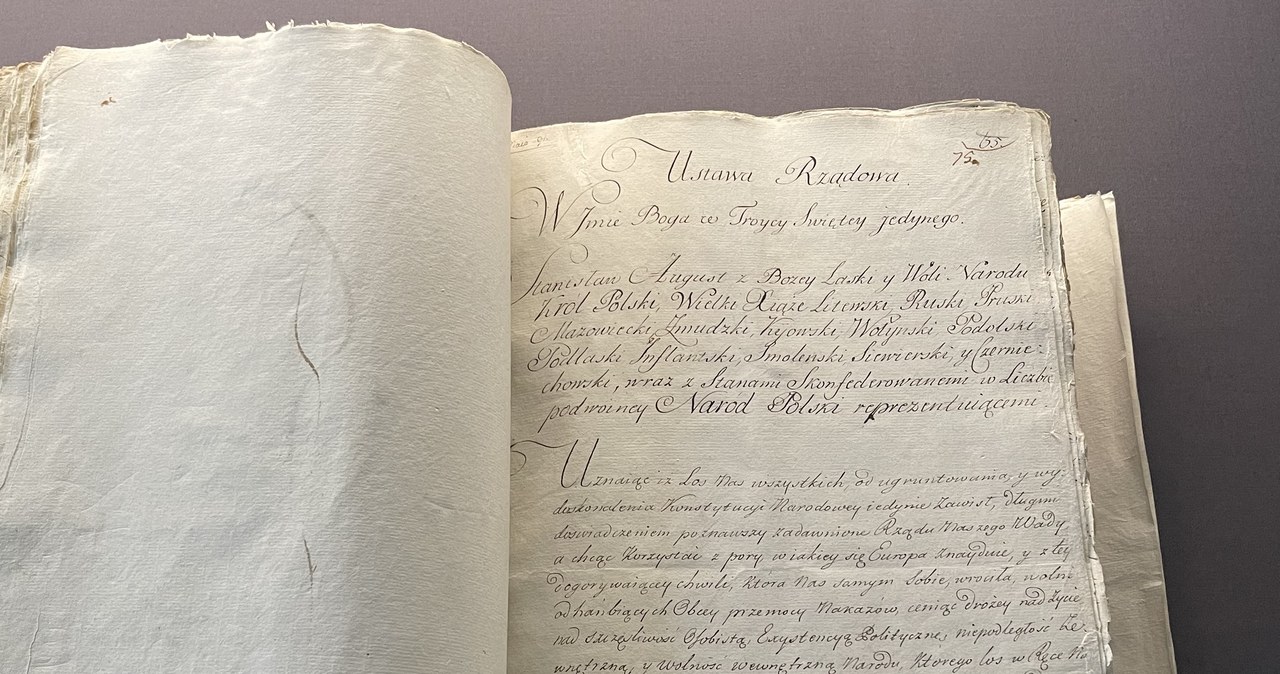 65.
75.
Ustawa Rządowa.
W Imie Boga w Troycy Swiętey jedynego.
Stanisław August z Bozey Łaski y Woli Narodu
Krol Polski, Wielki Xiąże Litewski, Ruski Pruski
Mazowiecki, Zmudzki, Kijowski, Wołynski Podolski
Podlaski Inflantski, Smolenski Siewierski, y Czernie-
chowski, wraz z Stanami Skonfederowanemi w Liczbie
podwoiney Narod Polski reprezentuiącemi.
Uznaiąc iż Los Nas wszystkich, od ugruntowania, y wy-
doskonalenia Konstytucyi Narodowey iedynie Zawisł, długim
doswiadczeniem poznawszy zadawnione Rządu Naszego Wady,
a chcąc korzystać z pory, w iakiey się Europa znayduie, y z tey
dogorywaiącey chwili, która Nas samym Sobie, wrociła, wolni
od hańbiących Obcey przemocy Nakazów, ceniąc drożey nad Życie
nad szczęśliwość Osobistą, Exystencyą Polityczną, niepodległość Ze-
wnętrzną, y wolność wewnętrzną Narodu, którego los w Ręce Na